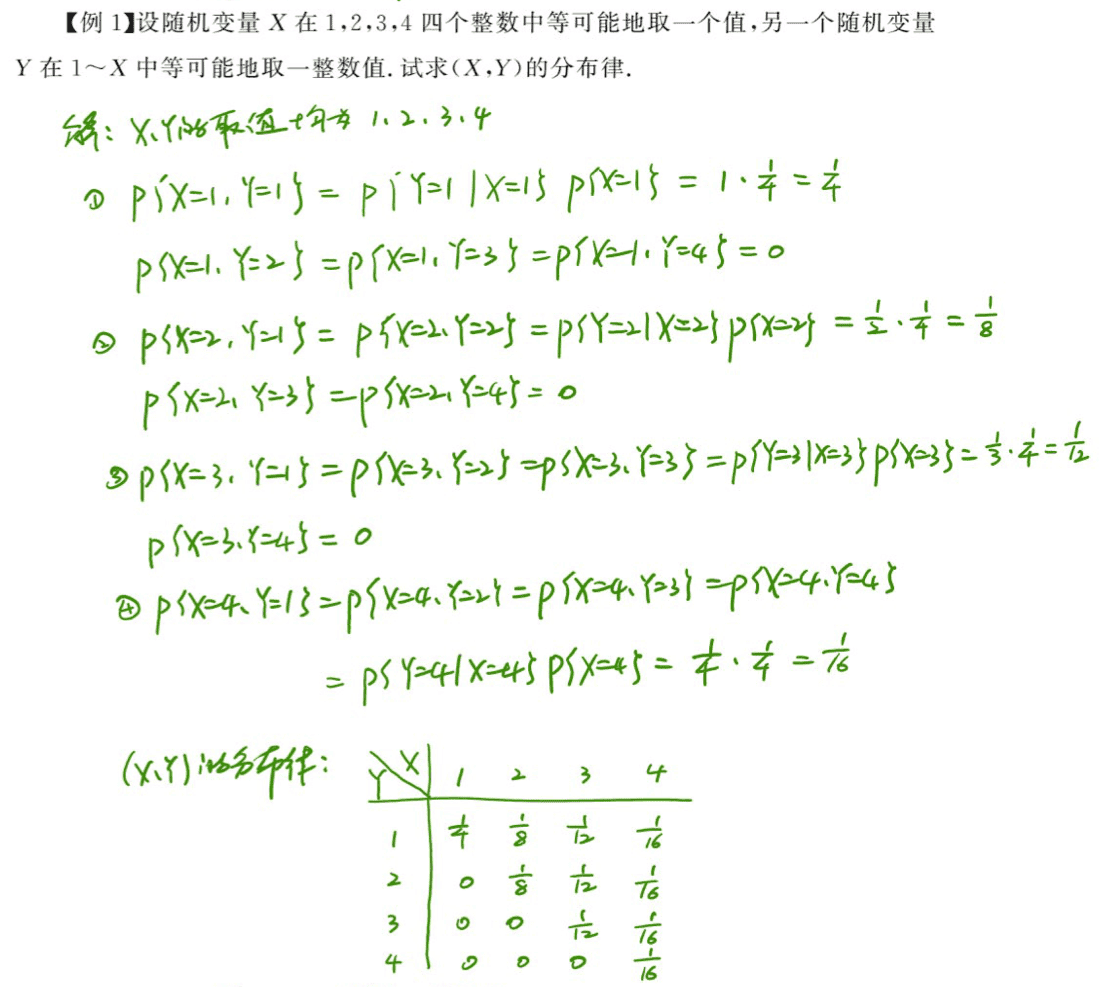 【例 1】设随机变量 X 在 1,2,3,4 四个整数中等可能地取一个值,另一个随机变量
Y 在 1～X 中等可能地取一整数值. 试求(X,Y)的分布律.
解: X、Y的取值均为 1、2、3、4
① P{X=1, Y=1} = P{Y=1 | X=1} P{X=1} = 1 · 1/4 = 1/4
P{X=1、Y=2} = P{X=1, Y=3} = P{X=1, Y=4} = 0
② P{X=2, Y=1} = P{X=2、Y=2} = P{Y=2|X=2} P{X=2} = 1/2 · 1/4 = 1/8
P{X=2, Y=3} = P{X=2, Y=4} = 0
③ P{X=3, Y=1} = P{X=3、Y=2} = P{X=3、Y=3} = P{Y=3|X=3} P{X=3} = 1/3 · 1/4 = 1/12
P{X=3、Y=4} = 0
④ P{X=4、Y=1} = P{X=4、Y=2} = P{X=4、Y=3} = P{X=4、Y=4}
= P{Y=4|X=4} P{X=4} = 1/4 · 1/4 = 1/16
(X、Y)的分布律: Y X 1 2 3 4
1 1/4 1/8 1/12 1/16
2 0 1/8 1/12 1/16
3 0 0 1/12 1/16
4 0 0 0 1/16